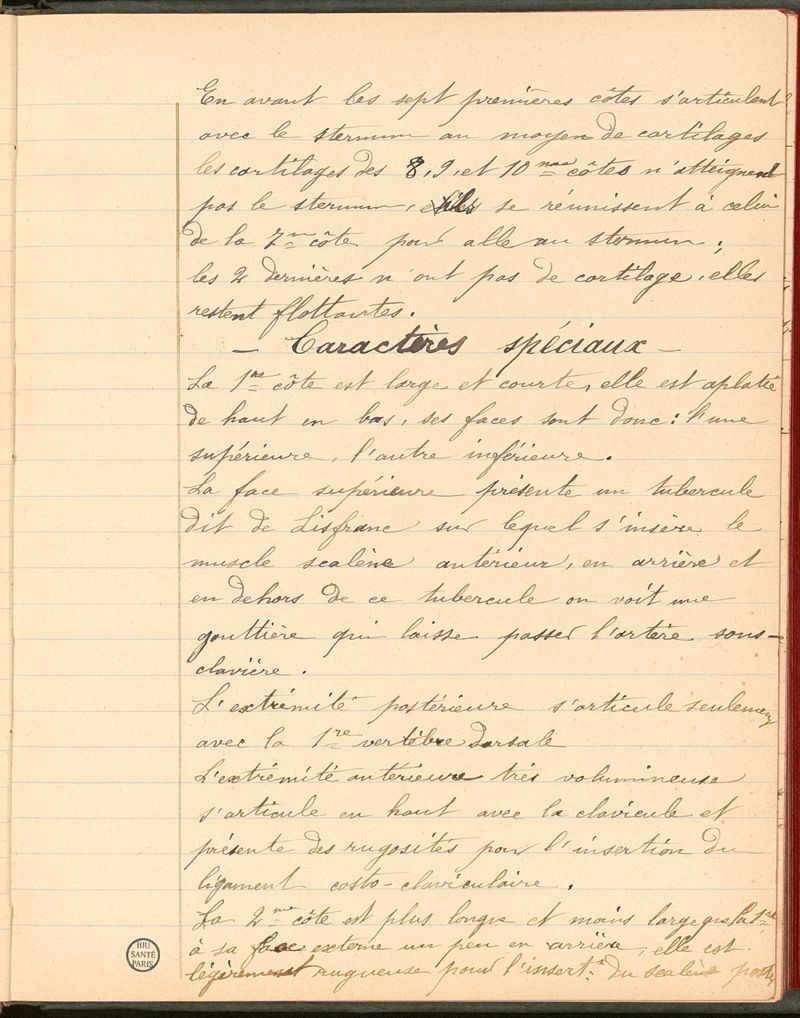 En avant les sept premières côtes s'articulent
avec le sternum au moyen de cartilages
les cartilages des 8, 9, et 10me côtes n'atteignent
pas le sternum, ils se réunissent à celui
de la 7me côte pour alle au sternum ;
les 2 dernières n'ont pas de cartilage, elles
restent flottantes.
- Caractères spéciaux -
La 1re côte est large et courte, elle est aplatie
de haut en bas, ses faces sont donc : l'une
supérieure, l'autre inférieure.
La face supérieure présente un tubercule
dit de Lisfranc sur lequel s'insère le
muscle scalène antérieur, en arrière et
en dehors de ce tubercule on voit une
gouttière qui laisse passer l'artère sous-
clavière.
L'extrémité postérieure s'articule seulement
avec la 1re vertèbre Dorsale
L'extrémité antérieure très volumineuse
s'articule en haut avec la clavicule et
présente des rugosités pour l'insertion du
ligament costo-claviculaire.
La 2me côte est plus longue et moins large que la 1re
à sa face externe un peu en arrière, elle est
légèrement rugueuse pour l'insertn du scalène post
BIU
SANTÉ
PARIS